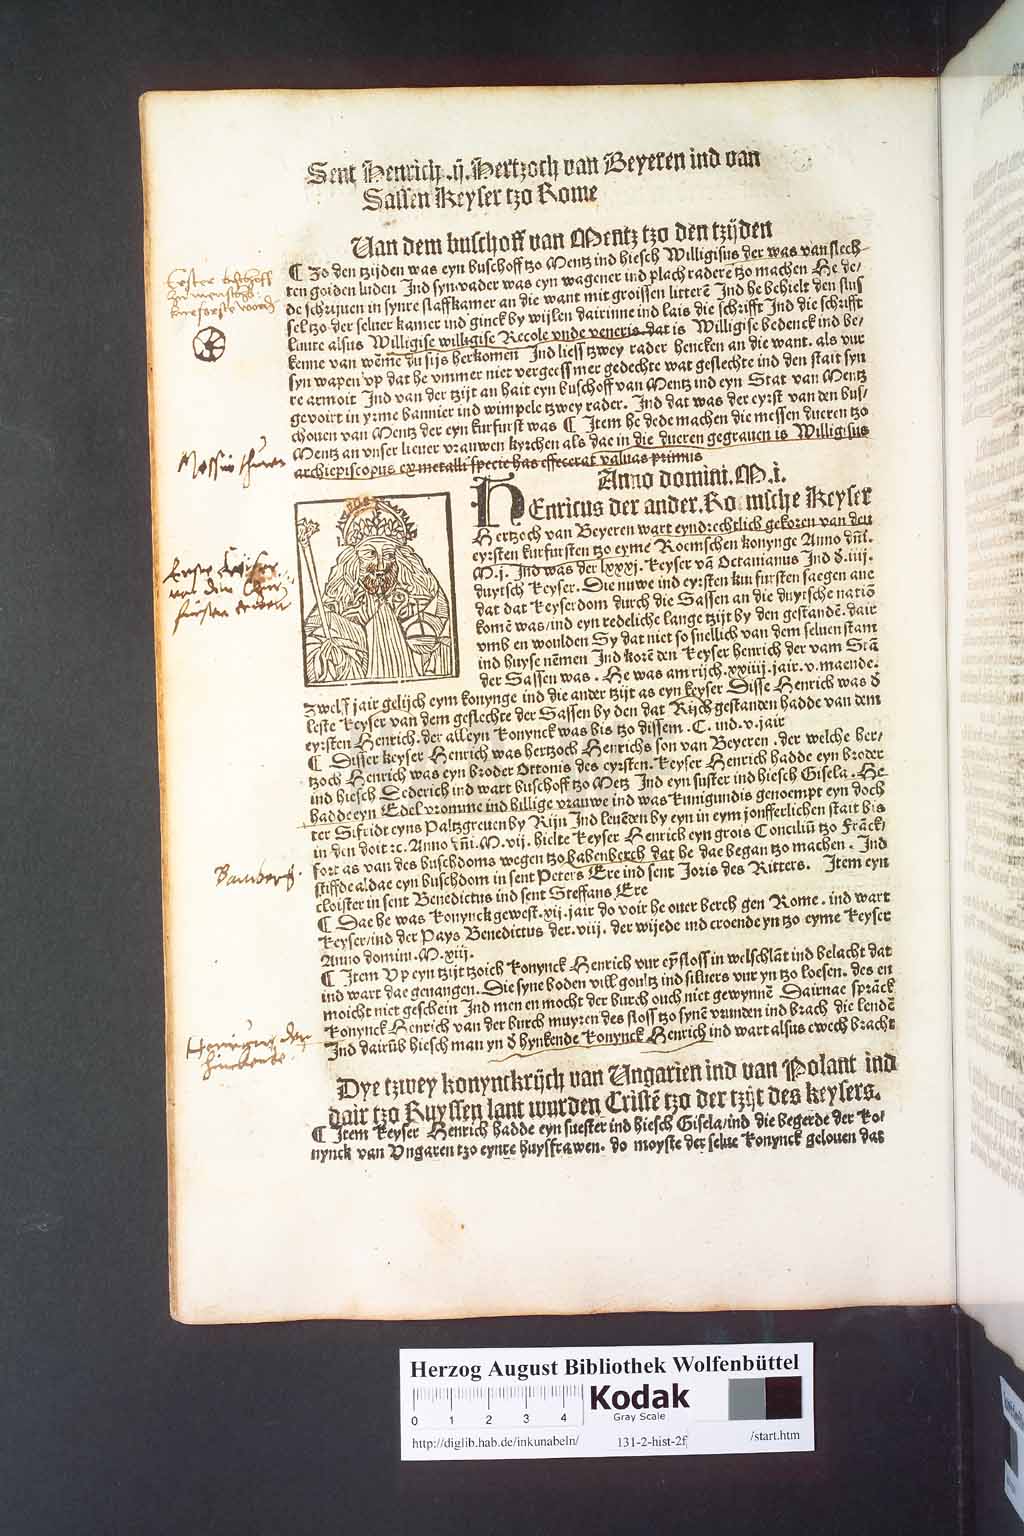 Sent Henrich .ij. Hertzoch van Beyeren ind van
Sassen Keyser tzo Rome
Uan dem buschoff van Mentz tzo den tzijden
¶ Zo den tzijden was eyn buschoff tzo Mentz ind hiesch Willigisus der was van slech-
ten goiden luden Ind syn vader was eyn wagener ind plach radere tzo machen He de/
de schrijuen in synre slaffkamer an die want mit groissen litterē Ind he behielt den slus
sel tzo der seluer kamer ind ginck by wijlen dairinne ind lais die schrifft Ind die schrifft
luute alsus Willigise willigise Recole vnde veneris dat is Willigise bedenck ind be/
kenne van wēme du sijs herkomen Ind liess tzwey rader hencken an die want. als vur
syn wapen vp dat he vmmer niet vergeess mer gedechte wat geslechte ind den stait syn
re armoit Ind van der tzijt an hait eyn buschoff van Mentz ind eyn Stat van Mentz
gevoirt in yrme bannier ind wimpele tzwey rader. Ind dat was der eyrst van den bus/
chouen van Mentz der eyn kurfurst was ¶ Item he dede machen die messen dueren tzo
Mentz an vnser lieuer vrauwen kyrchen als dae in die dueren gegrauen is Willigisus
archiepiscopus ex metalli specie has effecerat valuas primus
Anno domini. M. i.
HEnricus der ander. Roemsche Keyser
Hertzoch van Beyeren wart eyndrechtlich gekoren van den
eyrsten kurfursten tzo eyme Roemschen konynge Anno dn̄i.
M.j. Ind was der lxxxj. Keyser vā Octauianus Ind ď.iiij.
duytsch Keyser. Die nuwe ind eyrsten kurfursten saegen ane
dat dat Keyserdom durch die Sassen an die duytsche natiō
komē was/ind eyn redeliche lange tzijt by den gestandē. dair
vmb en woulden Sy dat niet so snellich van dem seluen stam
ind huyse nēmen Ind korē den Keyser henrich der vam Stā
der Sassen was. He was am rijch. xxiiij. jair. v. maende.
zwelff jair gelijch eym konynge ind die ander tzijt as eyn keyser Disse Henrich was ď
leste Keyser van dem geslechte der Sassen by den dat Rijch gestanden hadde van dem
eyrsten Henrich. der alleyn Konynck was bis tzo dissem. C. ind. v. jair
¶ Disser keyser Henrich was hertzoch Henrichs son van Beyeren. der welche her/
tzoch Henrich was eyn broder Ottonis des eyrsten. Keyser Henrich hadde eyn broder
ind hiesch Dederich ind wart buschoff tzo Metz Ind eyn suster ind hiesch Gisela. He
hadde eyn Edel vromme ind hillige vrauwe ind was Kunigundis genoempt eyn doch
ter Sifridt eyns Paltzgreuen by Rijn Ind leuēden by eyn in eym jonfferlichen stait bis
in den doit ꝛc. Anno dn̄i. M. vij. hielte Keyser Henrich eyn grois Conciliū tzo Frāck/
fort as van des buschdoms wegen tzo babenberch dat he dae began tzo machen. Ind
stiffde aldae eyn buschdom in sent Peters Ere ind sent Joris des Ritters. Item eyn
cloister in sent Benedictus ind sent Steffans Ere
¶ Dae he was Konynck gewest. xij. jair do voir he ouer berch gen Rome. ind wart
Keyser/ind der Pays Benedictus der. viij. der wijede ind croende yn tzo eyme Keyser
Anno domini. M. xiij.
¶ Item Vp eyn tzijt tzoich Konynck Henrich vur eyn̄ sloss in welschlāt ind belacht dat
ind wart dae geuangen. Die syne boden vill goultz ind siluers vur yn tzo loesen. des en
moicht niet geschein Ind men en mocht der burch ouch niet gewynnē Dairnae sprāck
Konynck Henrich van der burch muyren des sloss tzo synē vrunden ind brach die lendē
Ind dairūb hiesch man yn ď hynkende Konynck Henrich ind wart alsus ewech bracht
Dye tzwey konynckrijch van Ungarien ind van Polant ind
dair tzo Ruyssen lant wurden Cristē tzo der tzijt des keysers.
¶ Item Keyser Henrich hadde eyn suester ind hiesch Gisela/ind die begerde der Ko/
nynck van Vngaren tzo eynre huysfrawen. do moyste der selue Konynck gelouen das
Bamberg.
Herzog August Bibliothek Wolfenbüttel
Kodak
Gray Scale
0 1 2 3 4
http://diglib.hab.de/inkunabeln/ 131-2-hist-2f /start.htm